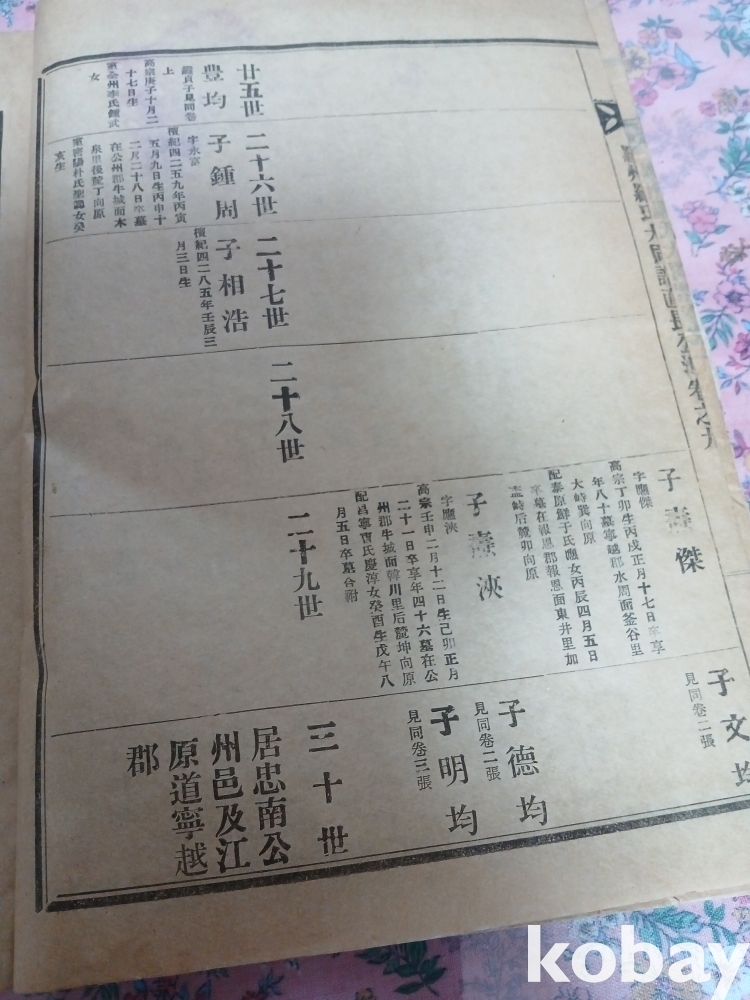 卷之九
子 傑
字應傑
高宗丁卯生丙戌正月十七日卒享
年八十墓寧越郡水周面釜谷里
大峙巽向原
配泰原鮮于氏應女丙辰四月五日
卒墓在報恩郡報恩面東井里加
峙后麓卯向原
子文均
見同卷二張
子 浹
字應浹
高宗壬申二月十二日生己卯正月
二十一日卒享年四十六墓在公
州郡牛城面韓川里后麓坤向原
配昌寧曺氏慶淳女癸酉生戊午八
月五日卒墓合祔
子德均
見同卷二張
子明均
見同卷三張
廿五世
二十六世
二十七世
二十八世
二十九世
三十世
豊均
貞子見同卷
上
高宗庚子十月二
十七日生
配全州李氏鍾武
女
子鍾周
字永富
檀紀四二五九年丙寅
五月九日生丙申十
二月二十八日卒墓
在公州郡牛城面木
泉里後麓丁向原
配密陽朴氏聖錦女癸
亥生
子相浩
檀紀四二八五年壬辰三
月三日生
居忠南公
州邑及江
原道寧越
郡
kobay